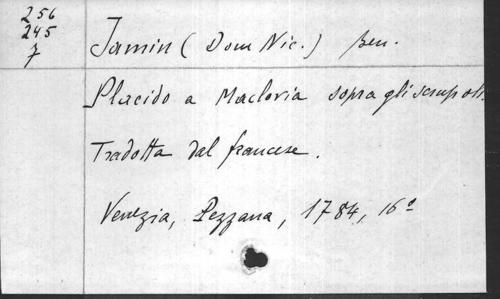 256
245
7
Jamin (Dom Nic.) Ben.
Placido a Macloria sopra gli scrupoli.
Tradotta dal francese.
Venezia, Pezzana, 1784, 16º